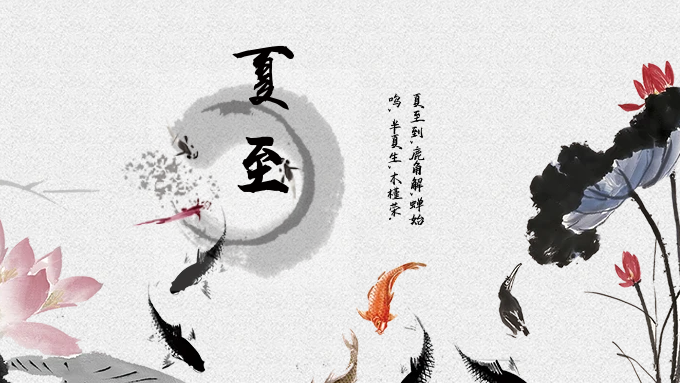 夏至
夏至到，鹿角解，蝉始
鸣，半夏生，木槿荣。